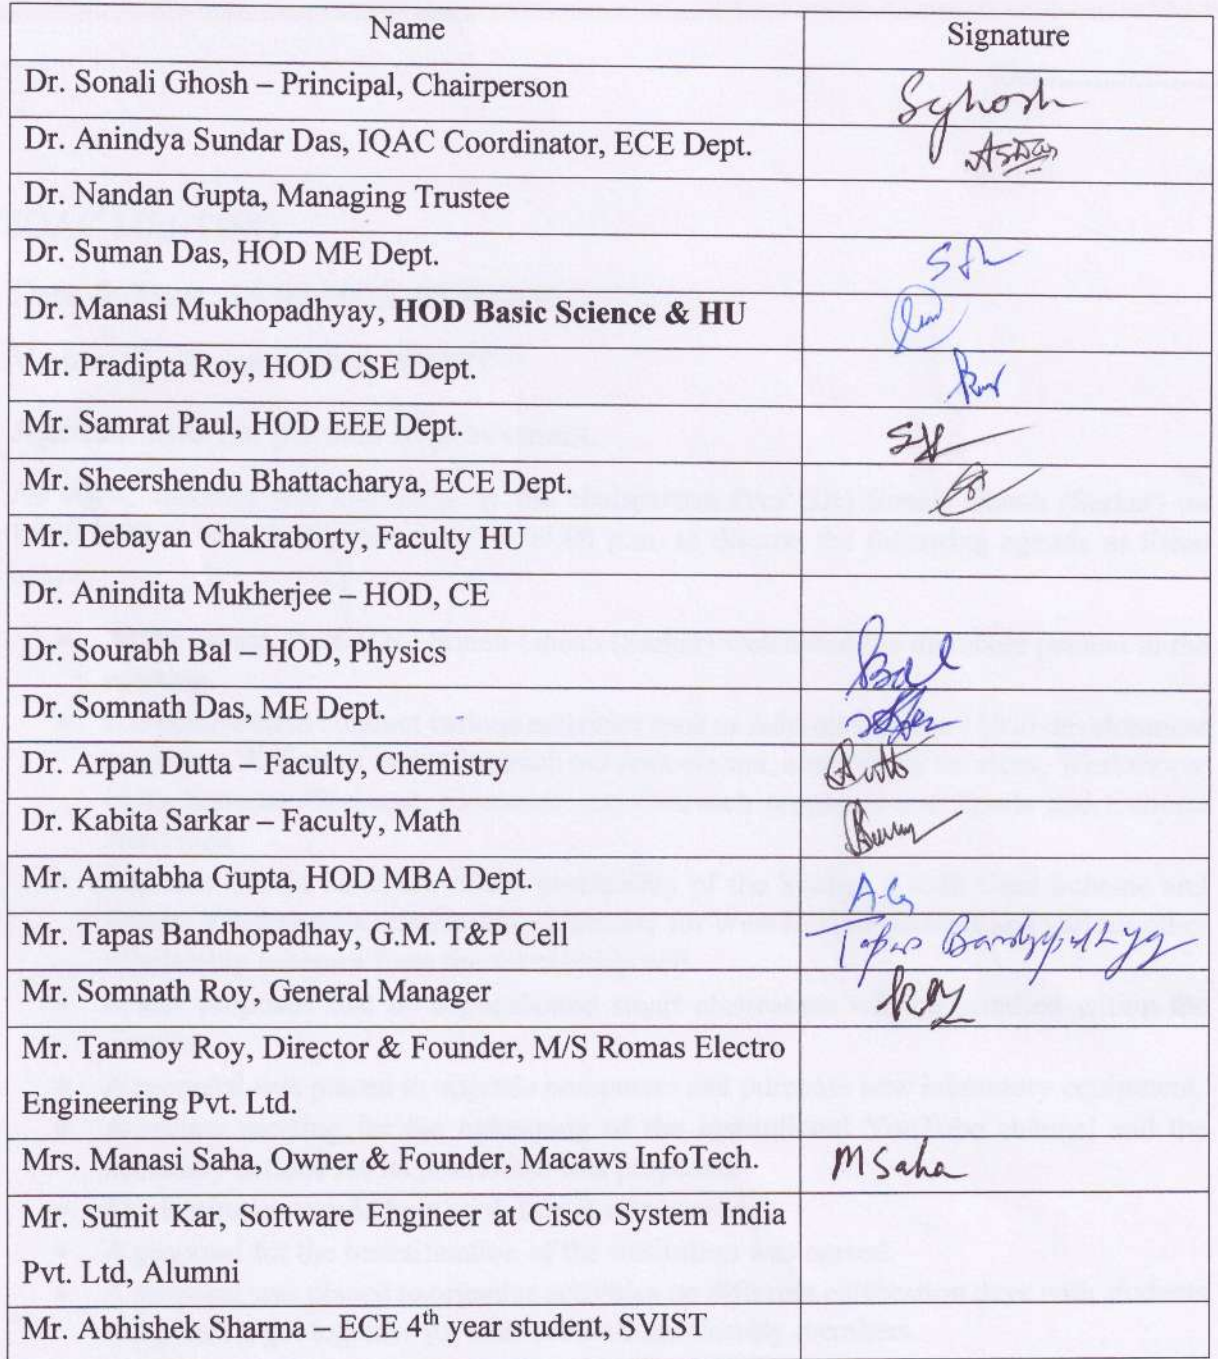 Name Signature
Dr. Sonali Ghosh – Principal, Chairperson Sghosh
Dr. Anindya Sundar Das, IQAC Coordinator, ECE Dept. ASDas
Dr. Nandan Gupta, Managing Trustee
Dr. Suman Das, HOD ME Dept.
Dr. Manasi Mukhopadhyay, HOD Basic Science & HU
Mr. Pradipta Roy, HOD CSE Dept.
Mr. Samrat Paul, HOD EEE Dept.
Mr. Sheershendu Bhattacharya, ECE Dept.
Mr. Debayan Chakraborty, Faculty HU
Dr. Anindita Mukherjee – HOD, CE
Dr. Sourabh Bal – HOD, Physics Bal
Dr. Somnath Das, ME Dept.
Dr. Arpan Dutta – Faculty, Chemistry
Dr. Kabita Sarkar – Faculty, Math
Mr. Amitabha Gupta, HOD MBA Dept.
Mr. Tapas Bandhopadhay, G.M. T&P Cell Tapas
Mr. Somnath Roy, General Manager Roy
Mr. Tanmoy Roy, Director & Founder, M/S Romas Electro
Engineering Pvt. Ltd.
Mrs. Manasi Saha, Owner & Founder, Macaws InfoTech. MSaha
Mr. Sumit Kar, Software Engineer at Cisco System India
Pvt. Ltd, Alumni
Mr. Abhishek Sharma – ECE 4th year student, SVIST